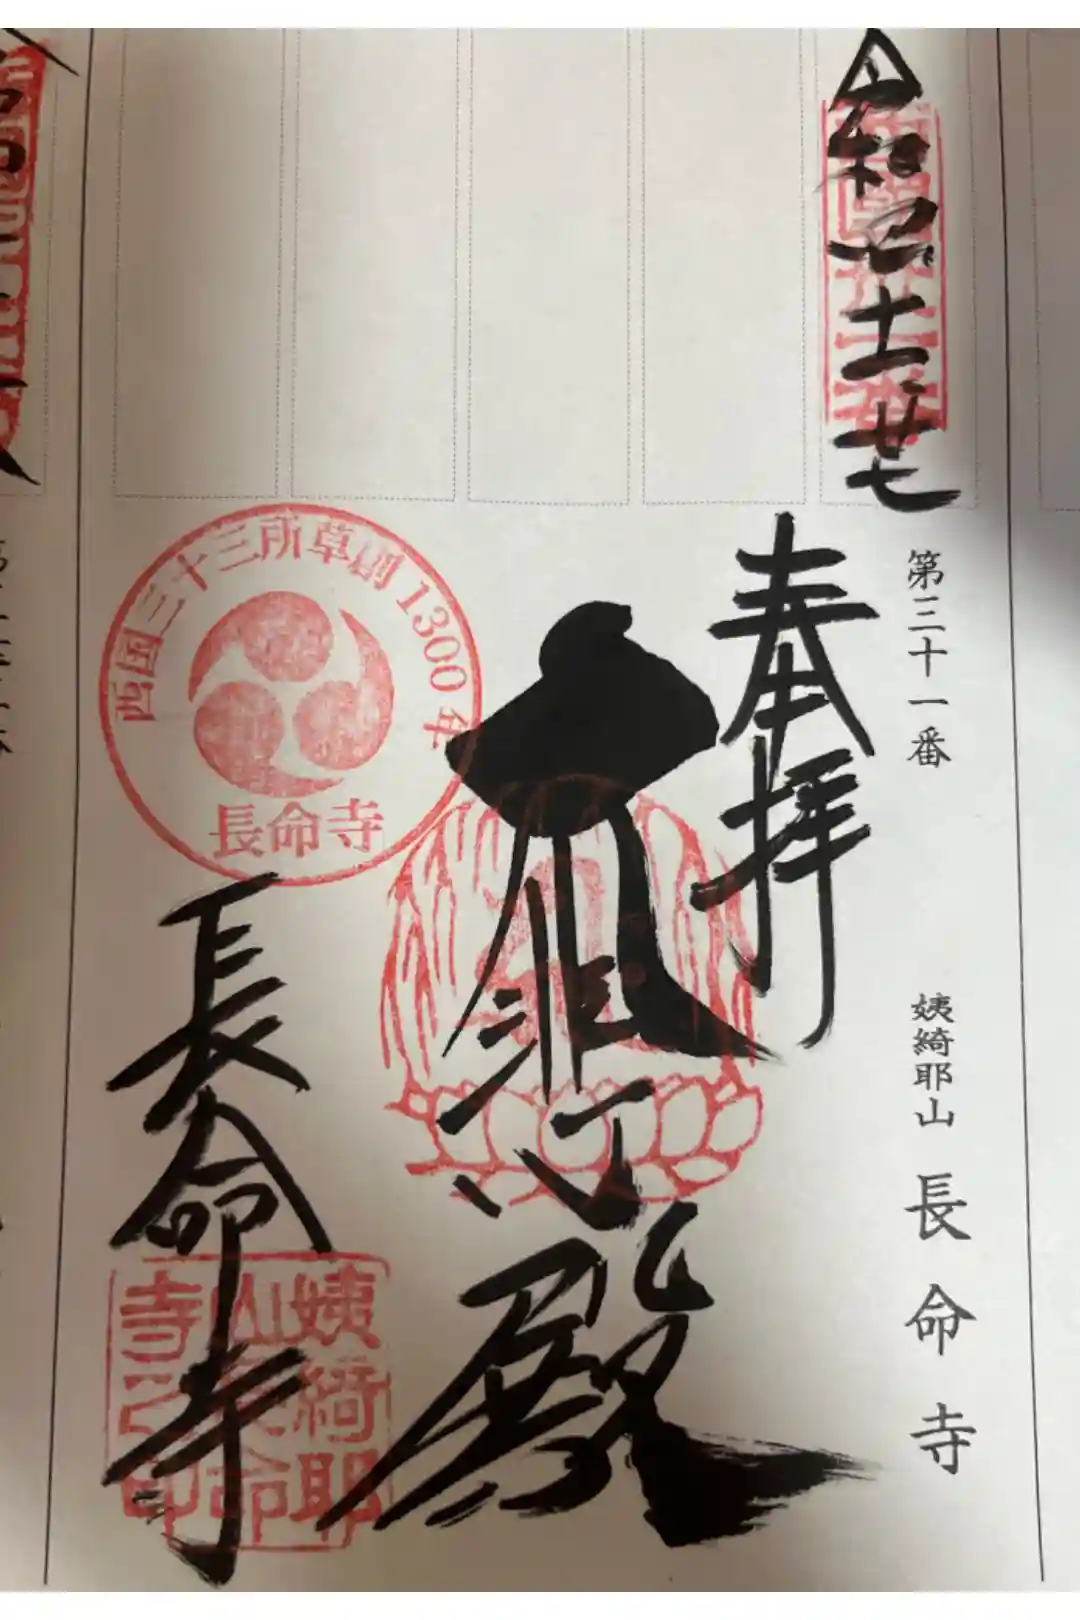 令和四 十一 廿七
第三十一番
姨綺耶山 長命寺
奉拝
殿
西国三十三所草創1300年
長命寺
長命寺
姨綺耶
山長命
寺之印